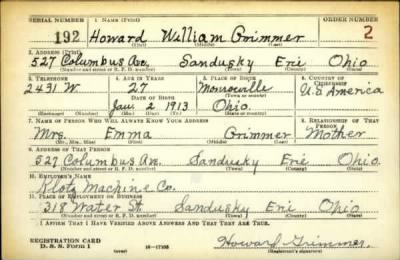 SERIAL NUMBER 1. NAME (Print) ORDER NUMBER
192 Howard William Grimmer 2
(First) (Middle) (Last)
2. ADDRESS (Print)
527 Columbus Ave. Sandusky Erie Ohio
(Number and street or R. F. D. number) (Town) (County) (State)
3. TELEPHONE 4. AGE IN YEARS 5. PLACE OF BIRTH 6. COUNTRY OF CITIZENSHIP
2431 W. 27 Monroeville U.S America
DATE OF BIRTH (Town or county)
Jan 2 1913 Ohio.
(Mo.) (Day) (Yr.) (State or country)
7. NAME OF PERSON WHO WILL ALWAYS KNOW YOUR ADDRESS 8. RELATIONSHIP OF THAT PERSON
Mrs. Emma Grimmer Mother
(Mr., Mrs., Miss) (First) (Middle) (Last)
9. ADDRESS OF THAT PERSON
527 Columbus Ave. Sandusky Erie Ohio.
(Number and street or R. F. D. number) (Town) (County) (State)
10. EMPLOYER'S NAME
Klotz Machine Co.
11. PLACE OF EMPLOYMENT OR BUSINESS
318 Water St Sandusky Erie Ohio
(Number and street or R. F. D. number) (Town) (County) (State)
I AFFIRM THAT I HAVE VERIFIED ABOVE ANSWERS AND THAT THEY ARE TRUE.
REGISTRATION CARD
D. S. S. Form 1 (over) 16—17105 Howard Grimmer.
(Registrant's signature)